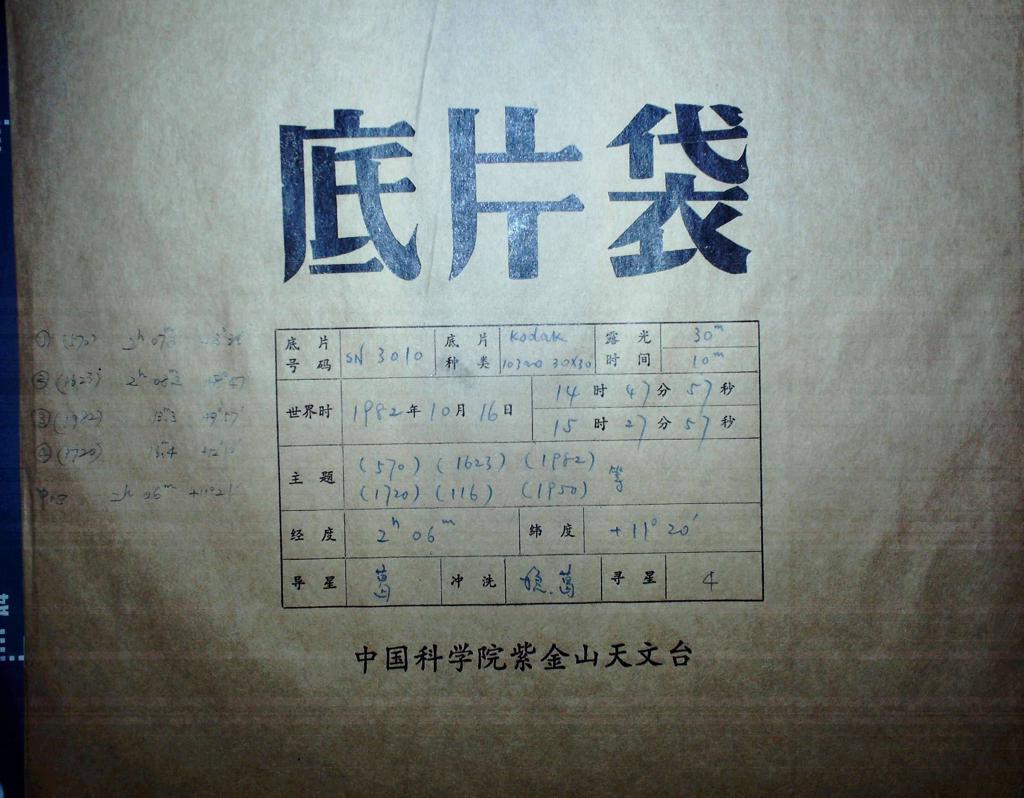 底片袋
底片号码 SN 3010 底片种类 Kodak 103aO 30×30 露光时间 30ᵐ 10ᵐ
世界时 1982年10月16日 14时47分57秒
15时27分57秒
主题 (570) (1623) (1982)
(1720) (116) (1950) 等
经度 2ʰ 06ᵐ 纬度 +11° 20′
导星 葛 冲洗 葛 寻星 4
中国科学院紫金山天文台
① (570) 2ʰ 07ᵐ
② (1623) 2ʰ
③ (1982)
④ (1720)
2ʰ 06ᵐ +11°21′